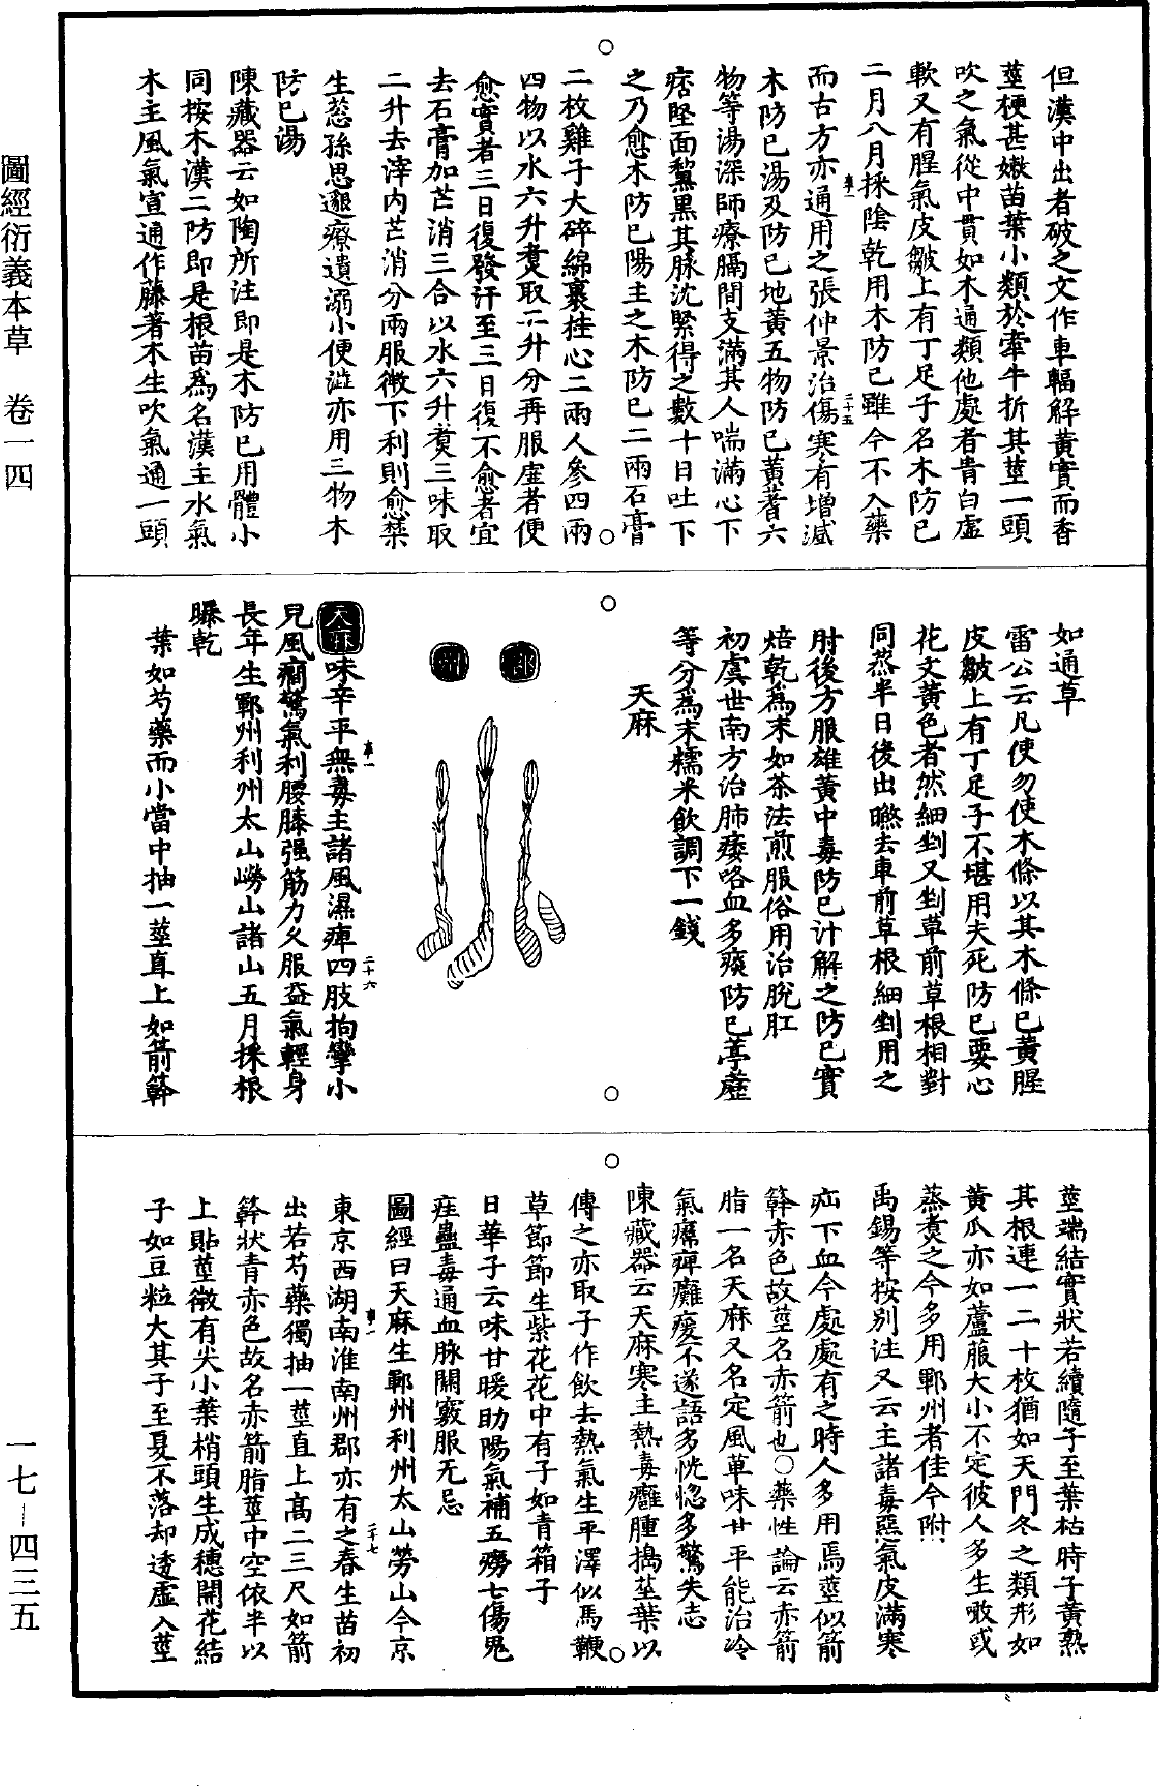 圖經衍義本草　卷一四
一七—四三五
但漢中出者破之文作車輻解黃實而香
莖梗甚嫩苗葉小類於牽牛折其莖一頭
吹之氣從中貫如木通類他處者青白虛
軟又有腥氣皮皺上有丁足子名木防已
二月八月採陰乾用木防已雖今不入藥
而古方亦通用之張仲景治傷寒有增減
木防已湯及防已地黃五物防已黃蓍六
物等湯深師療膈間支滿其人喘滿心下
痞堅面黧黑其脉沈緊得之數十日吐下
之乃愈木防已陽主之木防已二兩石膏
二枚雞子大碎綿裹桂心二兩人參四兩
四物以水六升煑取二升分再服虛者便
愈實者三日復發汗至三日復不愈者宜
去石膏加芒消三合以水六升煑三味取
二升去滓內芒消分兩服微下利則愈禁
生葱孫思邈療遺溺小便澁亦用三物木
防已湯
陳藏器云如陶所注即是木防已用體小
同按木漢二防即是根苗爲名漢主水氣
木主風氣宣通作藤著木生吹氣通一頭
如通草
雷公云凡使勿使木條以其木條已黃腥
皮皺上有丁足子不堪用夫死防已要心
花文黃色者然細剉又剉草前草根相對
同蒸半日後出㬠去車前草根細剉用之
肘後方服雄黃中毒防已汁解之防已實
焙乾爲末如茶法煎服俗用治脫肛
初虞世南方治肺痿咯血多痰防已葶藶
等分爲末糯米飲調下一錢
天麻
天麻味辛平無毒主諸風濕痺四肢拘攣小
兒風癎驚氣利腰膝强筋力久服益氣輕身
長年生鄆州利州太山嶗山諸山五月採根
曝乾
葉如芍藥而小當中抽一莖直上如箭簳
莖端結實狀若續隨子至葉枯時子黃熟
其根連一二十枚猶如天門冬之類形如
黃瓜亦如蘆菔大小不定彼人多生噉或
蒸煑之今多用鄆州者佳今附
禹錫等按別注又云主諸毒惡氣皮滿寒
疝下血今處處有之時人多用焉莖似箭
簳赤色故莖名赤箭也○藥性論云赤箭
脂一名天麻又名定風草味甘平能治冷
氣㿏痺癱瘓不遂語多恍惚多驚失志
陳藏器云天麻寒主熱毒癰腫搗莖葉以
傅之亦取子作飲去熱氣生平澤似馬鞭
草節節生紫花花中有子如青箱子
日華子云味甘暖助陽氣補五癆七傷鬼
疰蠱毒通血脉關竅服无忌
圖經曰天麻生鄆州利州太山勞山今京
東京西湖南淮南州郡亦有之春生苗初
出若芍藥獨抽一莖直上高二三尺如箭
簳狀青赤色故名赤箭脂莖中空依半以
上貼莖微有尖小葉梢頭生成穗開花結
子如豆粒大其子至夏不落却透虛入莖